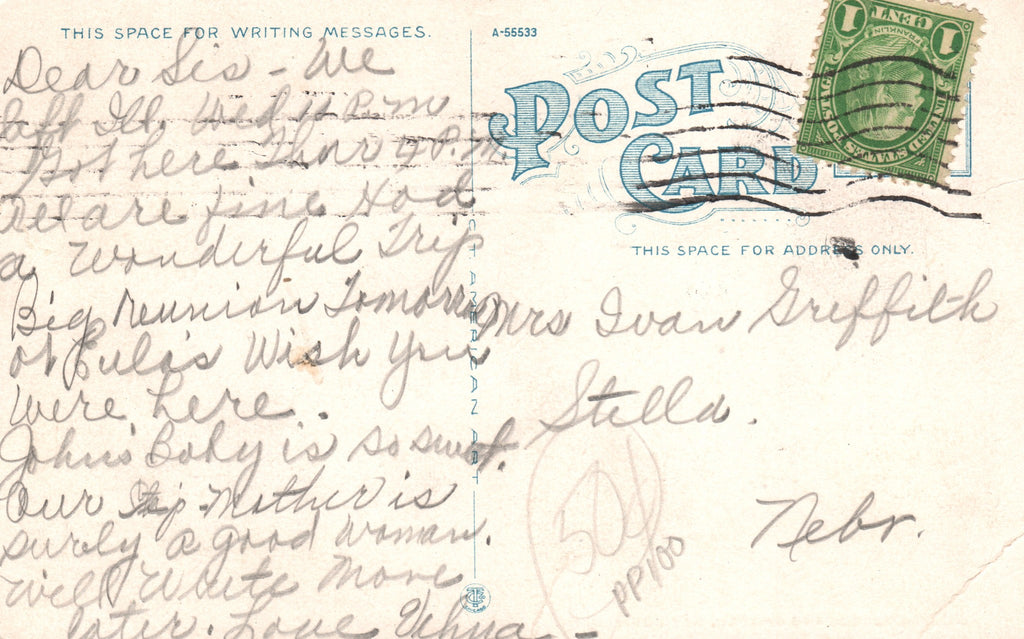 THIS SPACE FOR WRITING MESSAGES.
A-55533
POST
CARD
THIS SPACE FOR ADDRESS ONLY.
1 CENT 1
FRANKLIN
UNITED STATES POSTAGE
Dear Sis - We
Ill. Wed 11 P.m
Got here Thur P.M.
We are fine Had
a Wonderful Trip
Big reunion Tomorrow
at Eula's Wish You
Were here.
John's Baby is so sweet.
Our Step-Mother is
surely a good woman.
Will Write More
later. Love Velma -
Mrs Ivan Griffith
Stella.
Nebr.
504
PP100
CT AMERICAN ART